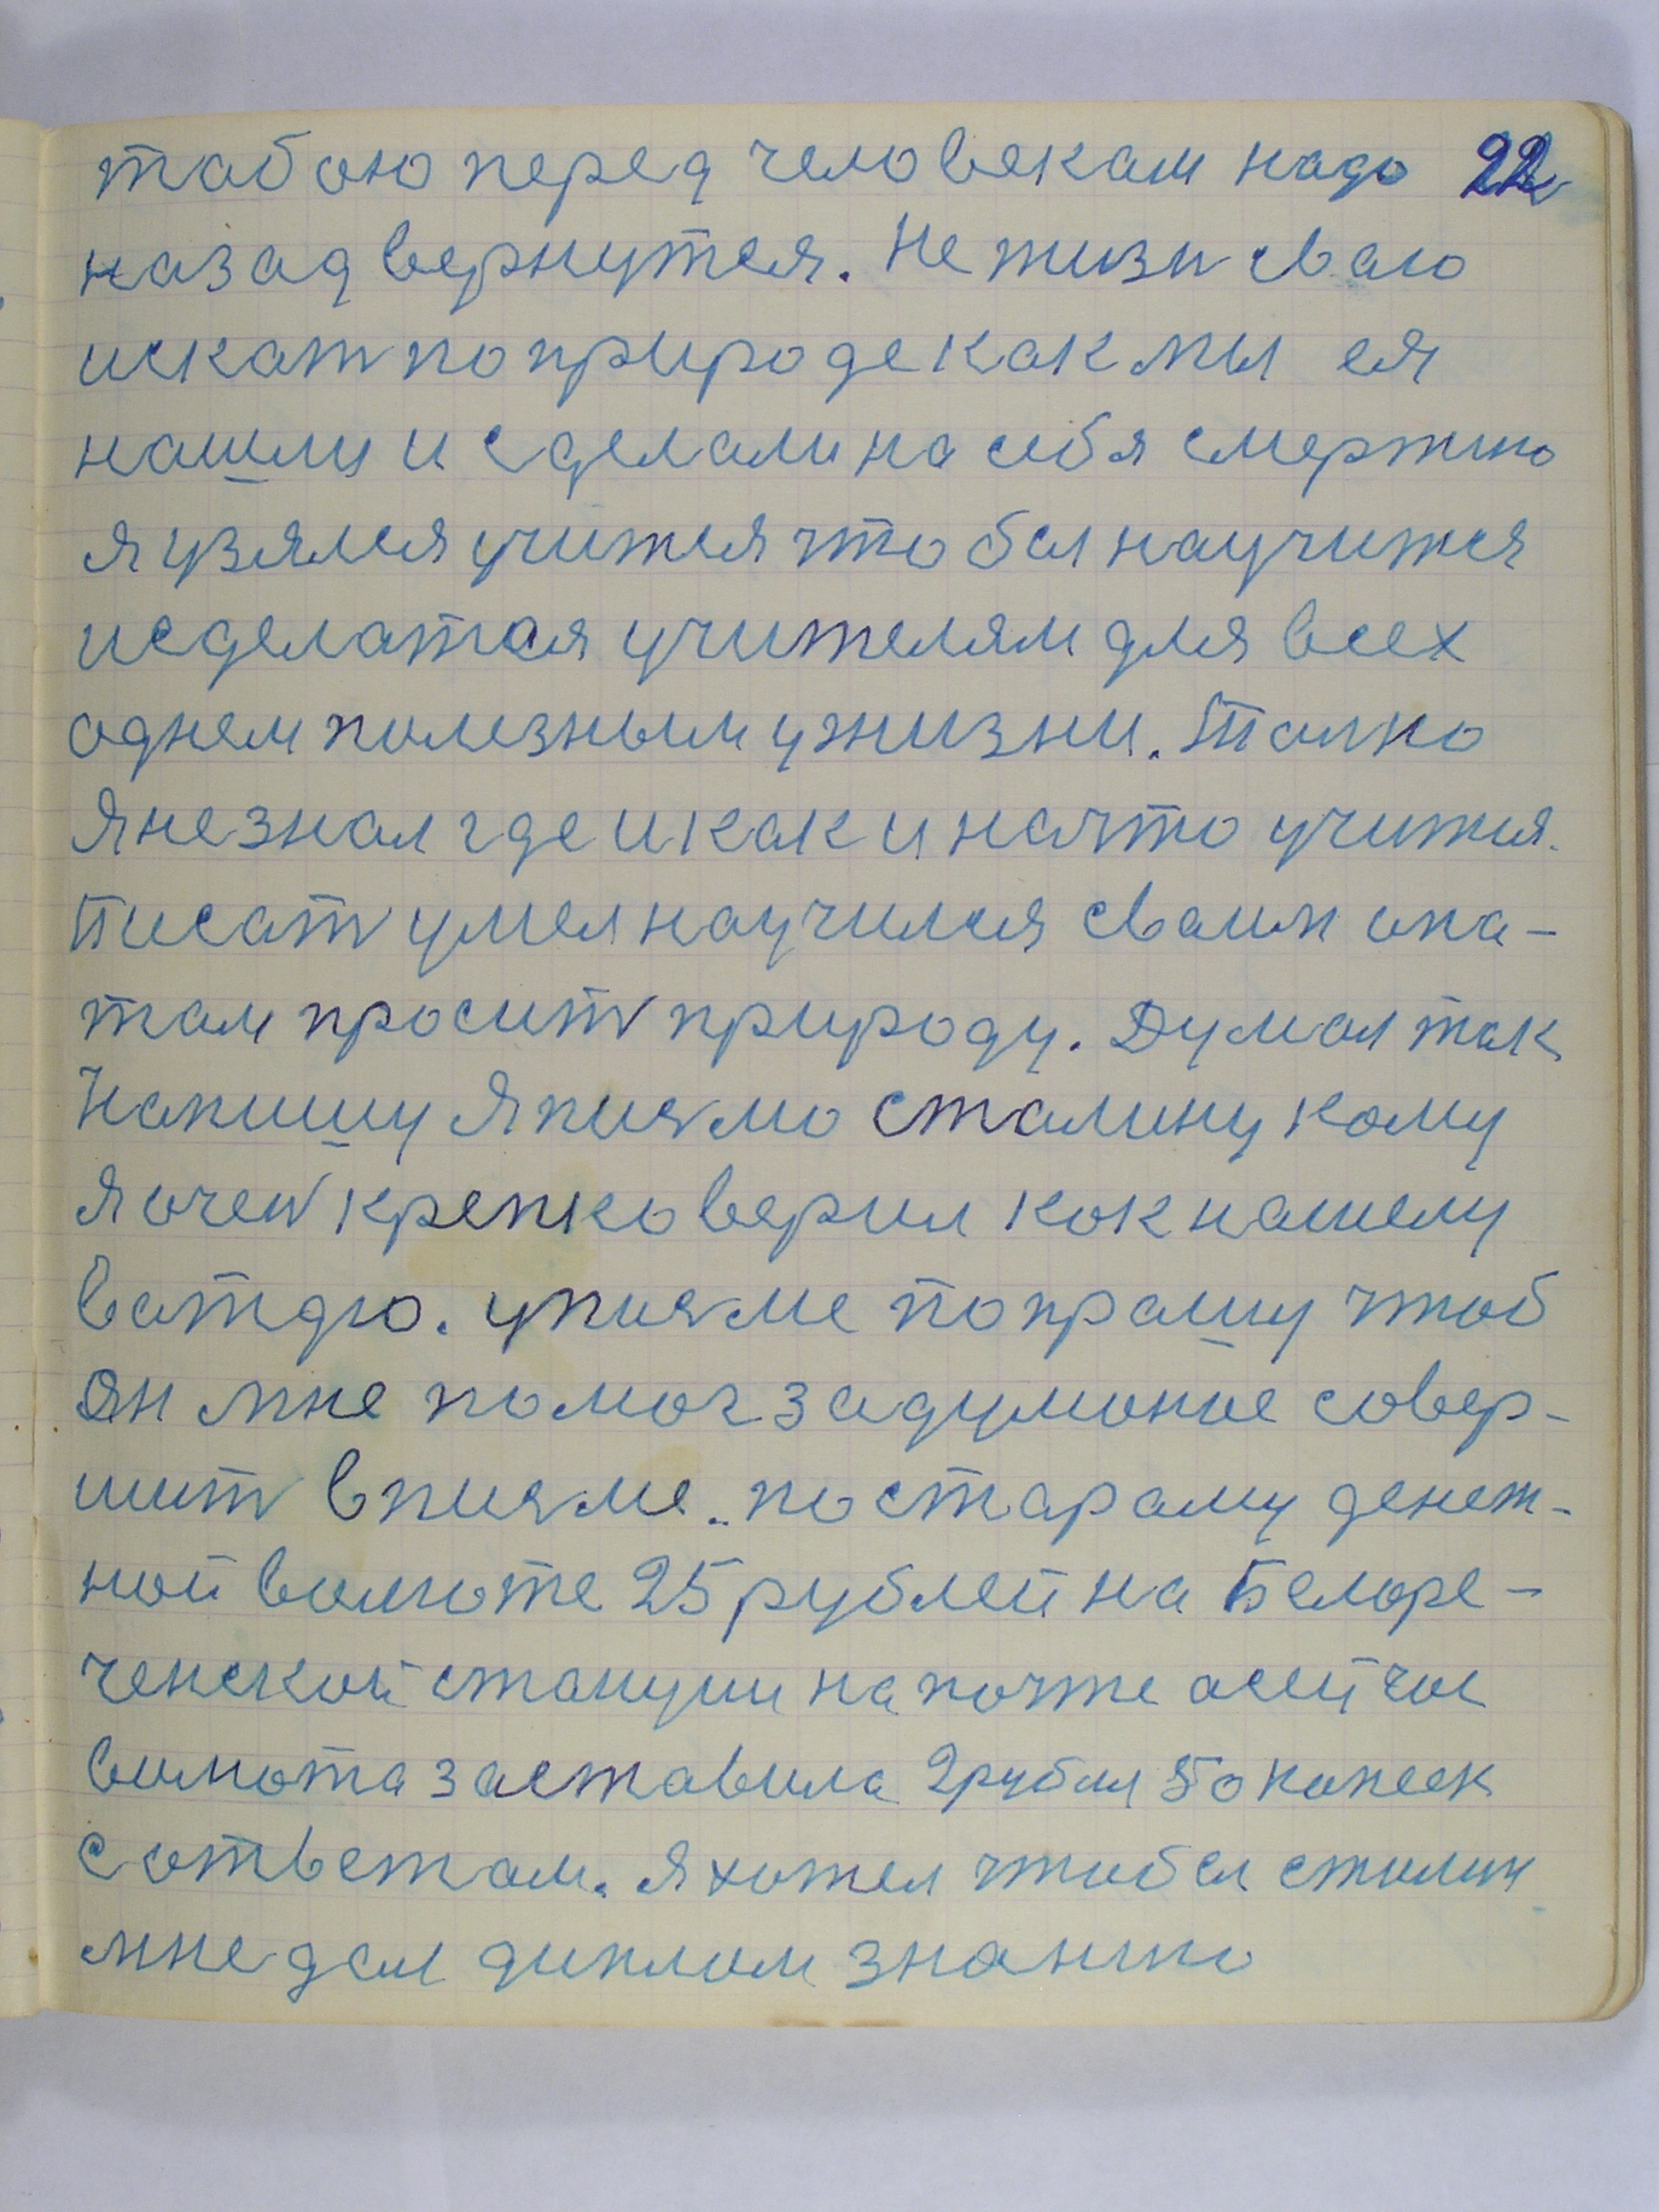 табою перед человекам надо 22
назад вернутся. Не жизн сваю
искат по природе как мы ея
нашли и сделали на себя смертию
я узялся учится что бы научится
и сделатся учителям для всех
однем полезным у жизни. Толко
Я не знал где и как и на что учится.
Писат умел научился сваим опа-
там просит природу. Думал так
Напишу Я писмо сталину кому
я очен крепко верил как нашему
вождю. у писме попрашу чтоб
он мне помог задуманое совер-
шит в писме. по старому денеж-
ной валюте 25 рублей на Белоре-
ченской станции на почте а сейчас
валюта заставила 2 рубля 50 копеек
с ответам. Я хотел чтобы сталин
мне дал диплом знанию